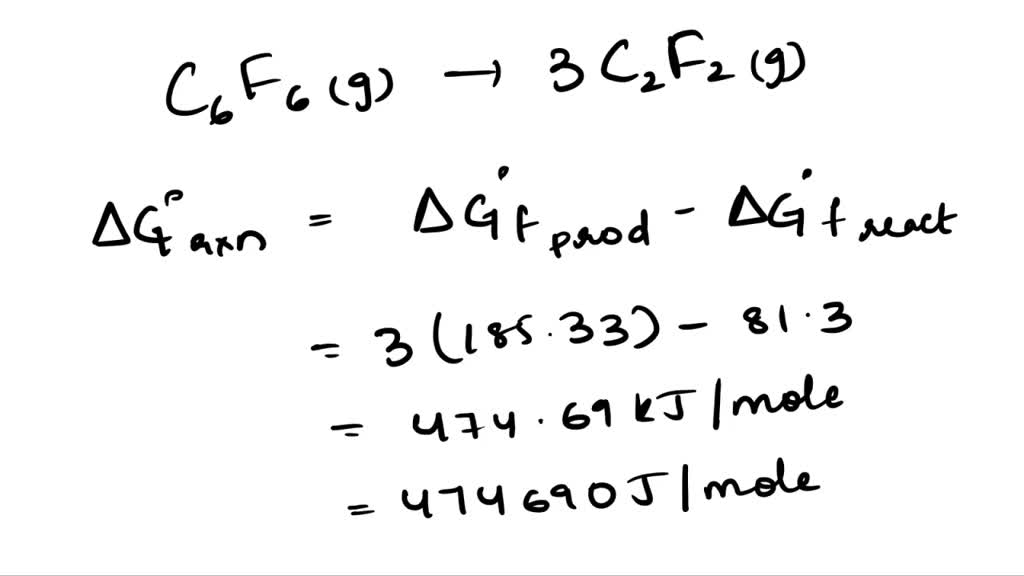 C₆F₆(g) → 3C₂F₂(g)
ΔG°rxn = ΔG°f prod - ΔG°f react
= 3(185.33) - 81.3
= 474.69 kJ/mole
= 474690 J/mole